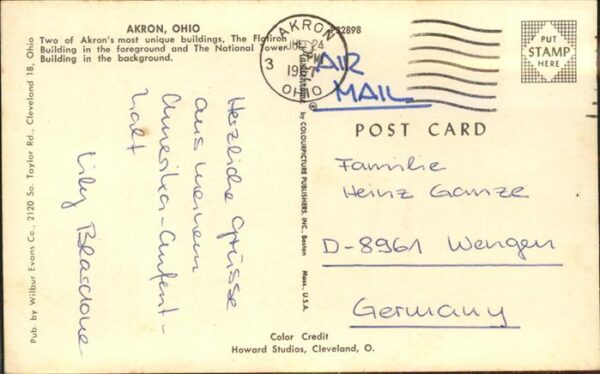 AKRON, OHIO
Two of Akron's most unique buildings, The Flatiron
Building in the foreground and The National Tower
Building in the background.
Pub. by Wilbur Evans Co., 2120 So. Taylor Rd., Cleveland 18, Ohio
Herzliche Grüsse
aus meinem
Amerika-Aufent-
halt
Lily
AKRON
24
PM
3
OHIO
AIR
MAIL
PUT
STAMP
HERE
by COLOURPICTURE PUBLISHERS, INC., Boston Mass., U.S.A.
POST CARD
Familie
Heinz Ganze
D-8961 Wengen
Germany
Color Credit
Howard Studios, Cleveland, O.